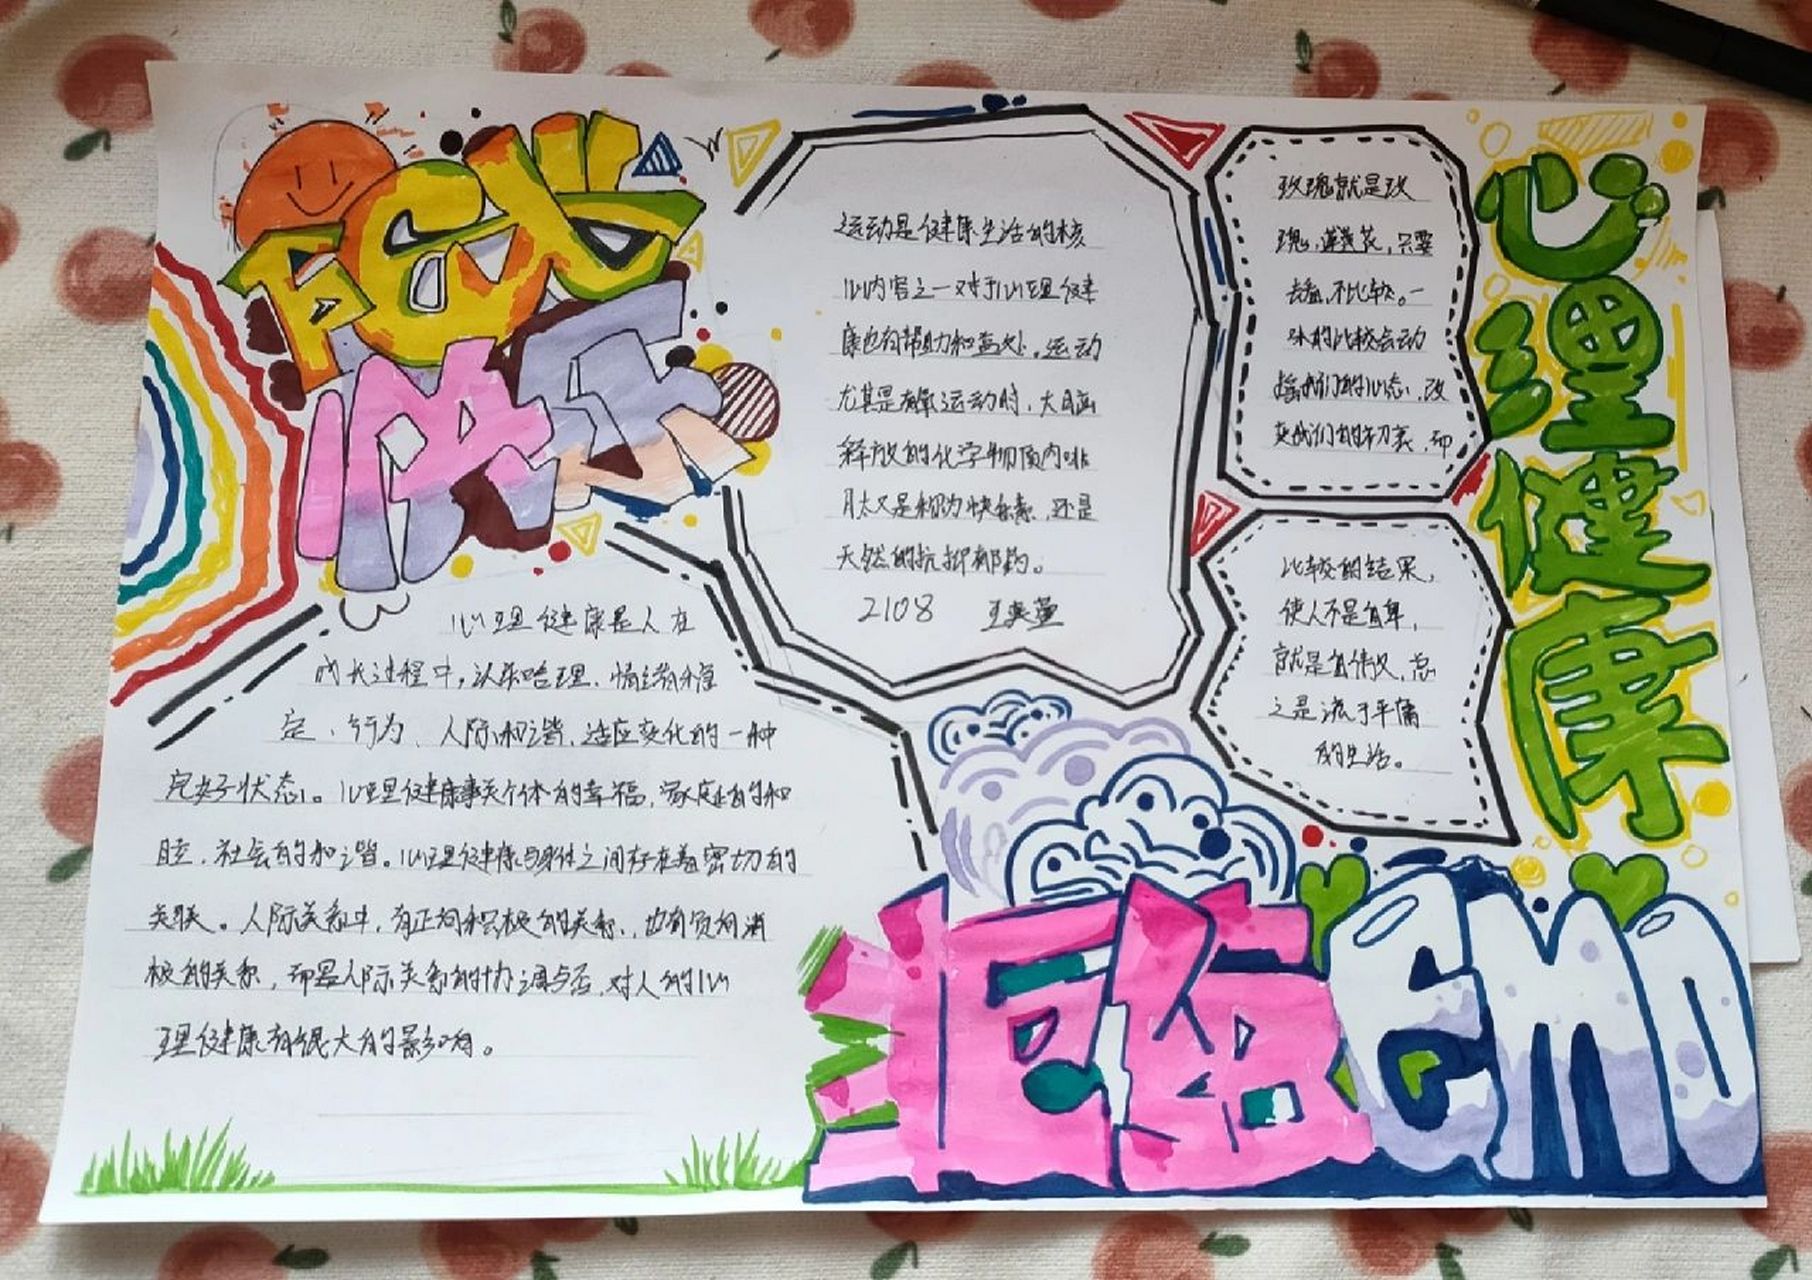 快乐
运动是健康生活的核
心内容之一对于心理健
康也有帮助和益处。运动
尤其是有氧运动时,大脑
释放的化学物质内啡
肽又是称为快乐素,还是
天然的抗抑郁药。
2108
玫瑰就是玫
瑰,莲花,只要
去看,不比较。一
味的比较会动
摇我们的心态,改
变我们的初衷,而
比较的结果,
使人不是自卑,
就是自傲,总
之是流于平庸
的生活。
心理健康
心理健康是人在
成长过程中,认知合理、情绪稳
定、行为、人际和谐、适应变化的一种
完好状态。心理健康事关个体的幸福,家庭的和
睦,社会的和谐。心理健康与身体之间存在着密切的
关联。人际关系中,有正向积极的关系,也有负向消
极的关系,而是人际关系的协调与否,对人的心
理健康有很大的影响。
拒绝EMO